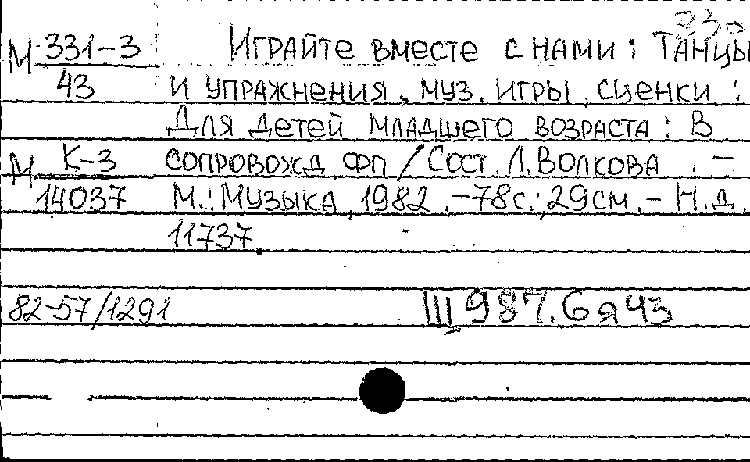 М 331-3 Играйте вместе с нами: Танцы
43 и упражнения, муз. игры, сценки:
Для детей младшего возраста: В
М К-3 сопровожд. фп / Сост. Л. Волкова. –
14037 М.: Музыка, 1982. – 78 с.; 29 см. – Н.д.
11737.
82-57/1291 III 987.6я43